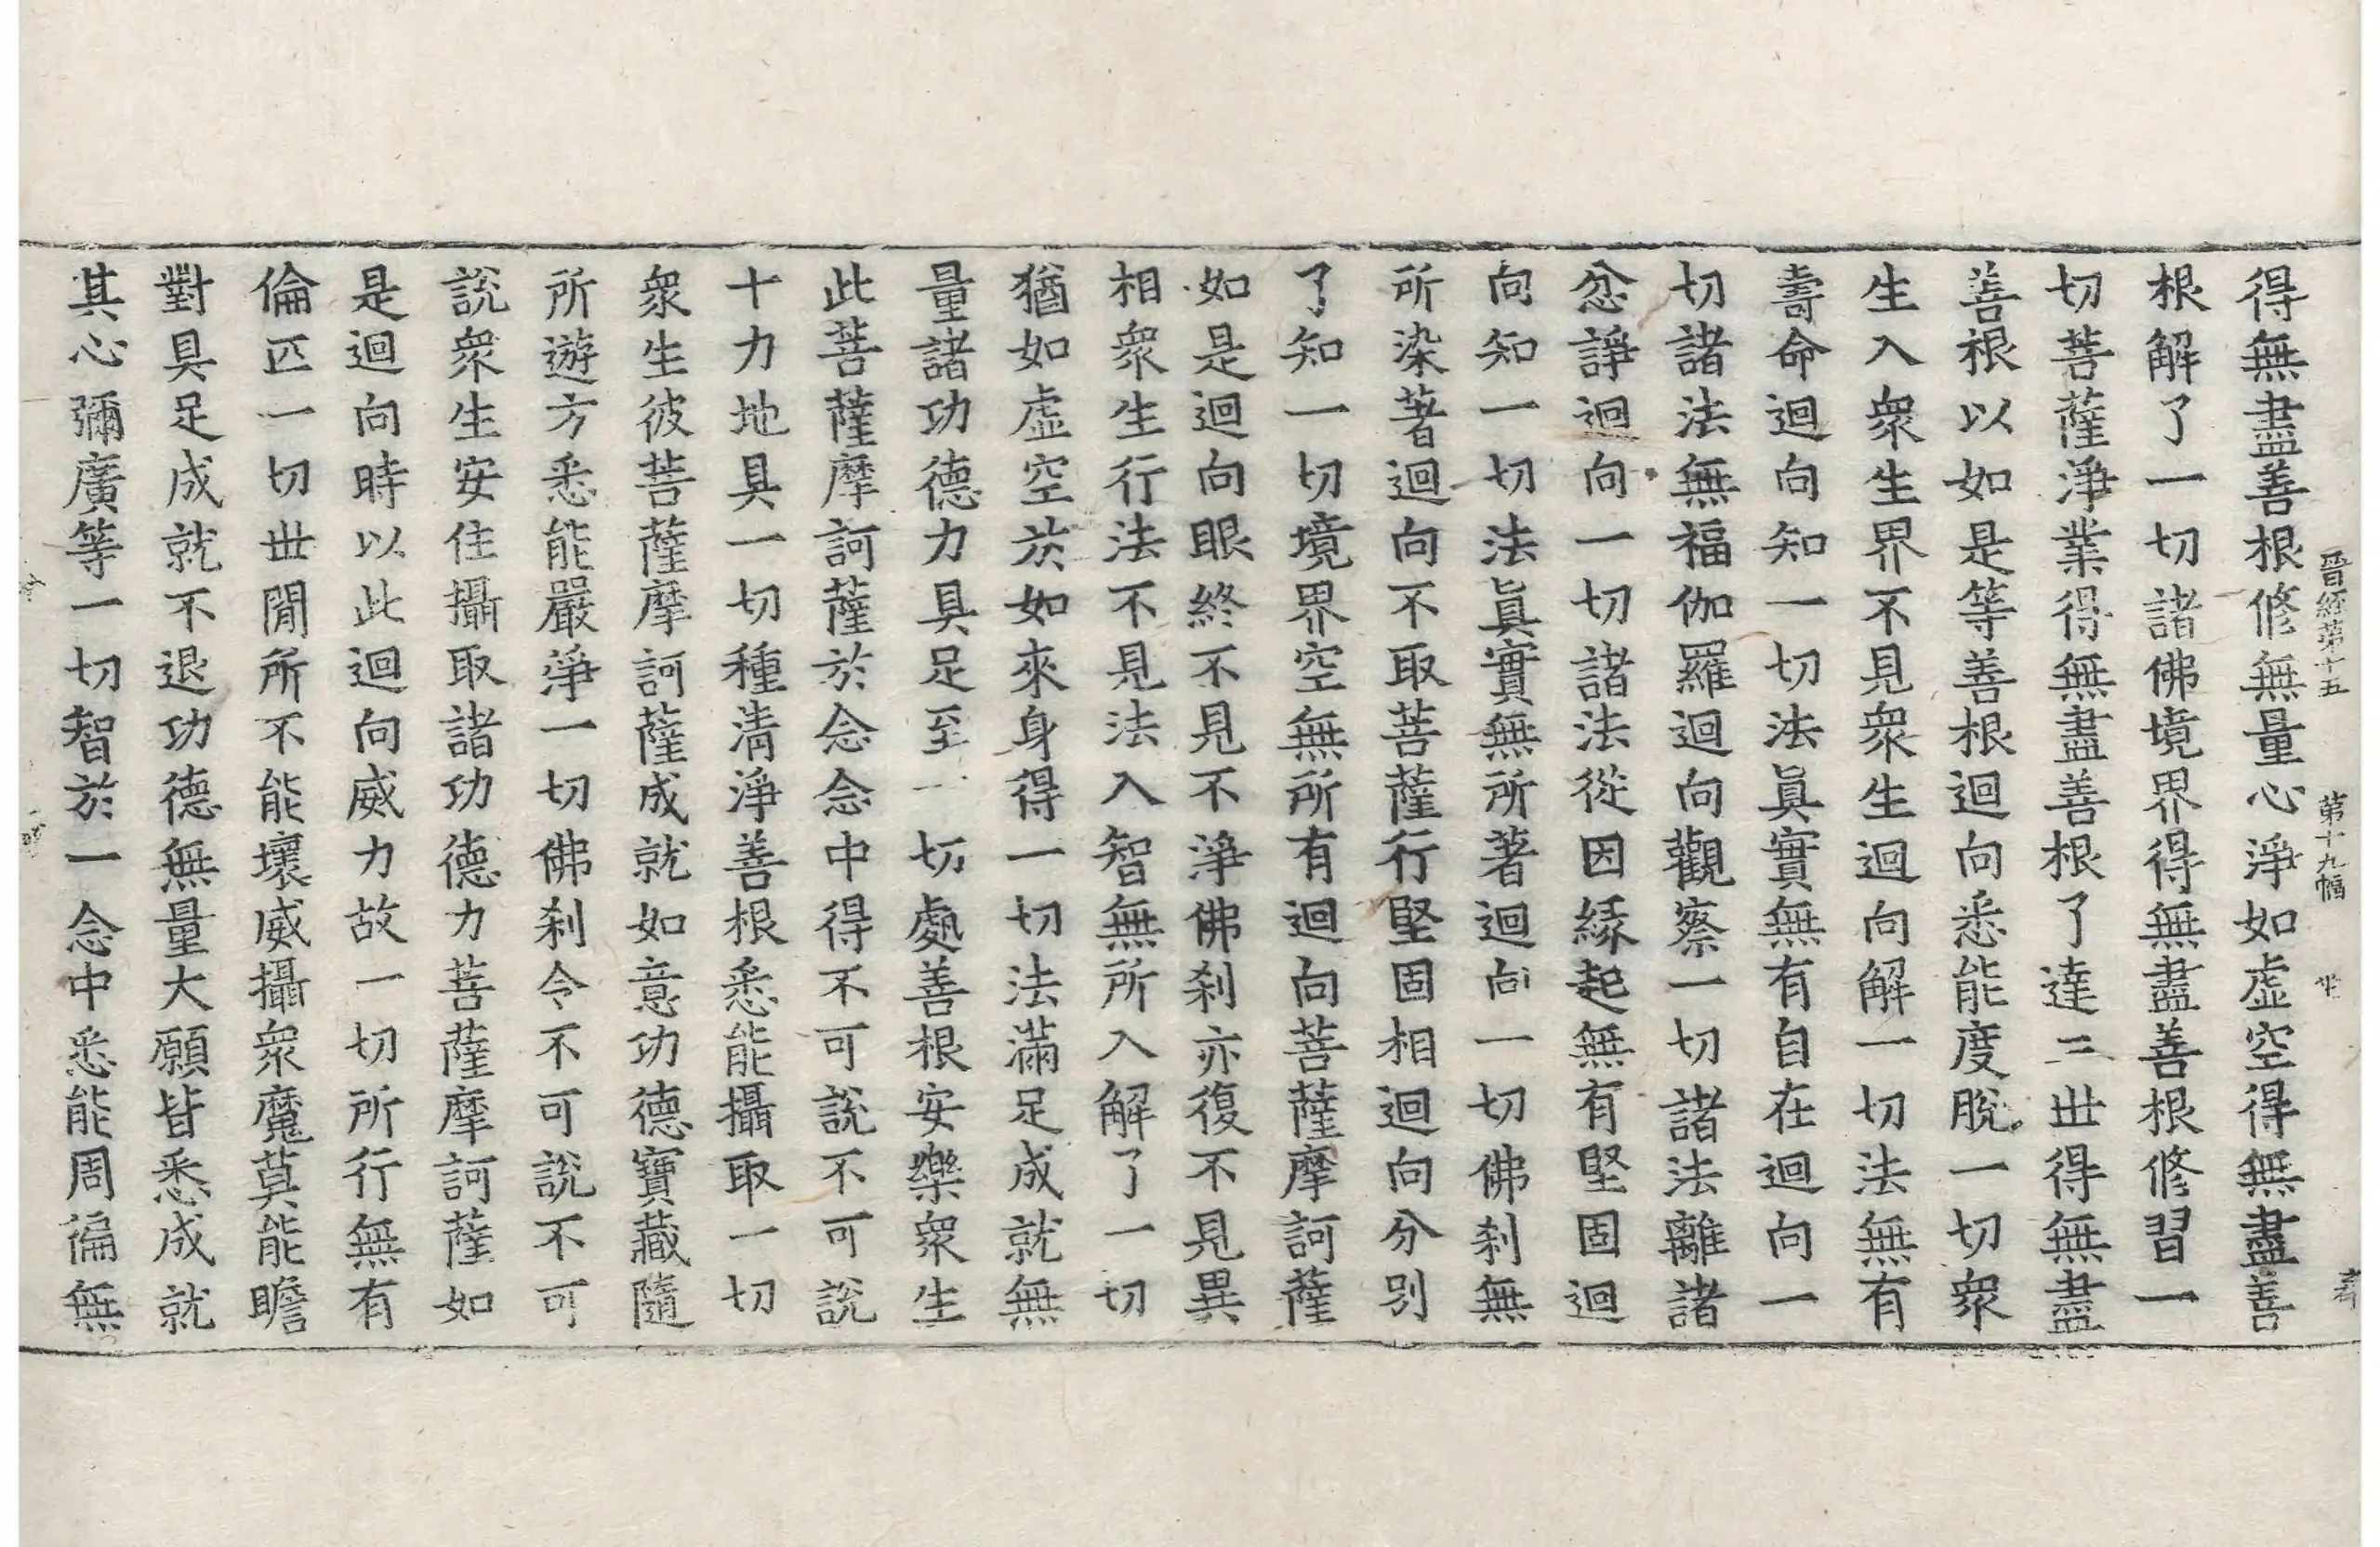 晋經第十五 第十九幅
得無盡善根修無量心淨如虛空得無盡善
根解了一切諸佛境界得無盡善根修習一
切菩薩淨業得無盡善根了達三世得無盡
善根以如是等善根迴向悉能度脫一切衆
生入衆生界不見衆生迴向解一切法無有
壽命迴向知一切法眞實無有自在迴向一
切諸法無福伽羅迴向觀察一切諸法離諸
忿諍迴向一切諸法從因緣起無有堅固迴
向知一切法眞實無所著迴向一切佛刹無
所染著迴向不取菩薩行堅固相迴向分別
了知一切境界空無所有迴向菩薩摩訶薩
如是迴向眼終不見不淨佛刹亦復不見異
相衆生行法不見法入智無所入解了一切
猶如虛空於如來身得一切法滿足成就無
量諸功德力具足至一切處善根安樂衆生
此菩薩摩訶薩於念念中得不可說不可說
十力地具一切種淸淨善根悉能攝取一切
衆生彼菩薩摩訶薩成就如意功德寶藏隨
所遊方悉能嚴淨一切佛刹令不可說不可
說衆生安住攝取諸功德力菩薩摩訶薩如
是迴向時以此迴向威力故一切所行無有
倫匹一切世閒所不能壞威攝衆魔莫能瞻
對具足成就不退功德無量大願皆悉成就
其心彌廣等一切智於一念中悉能周徧無